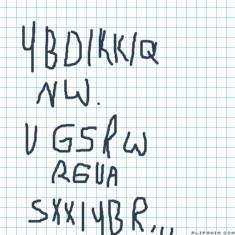 YBDIKKIQ
NW.
UGSRW
REUA
SXXIYBR..
FLIPANIM.COM